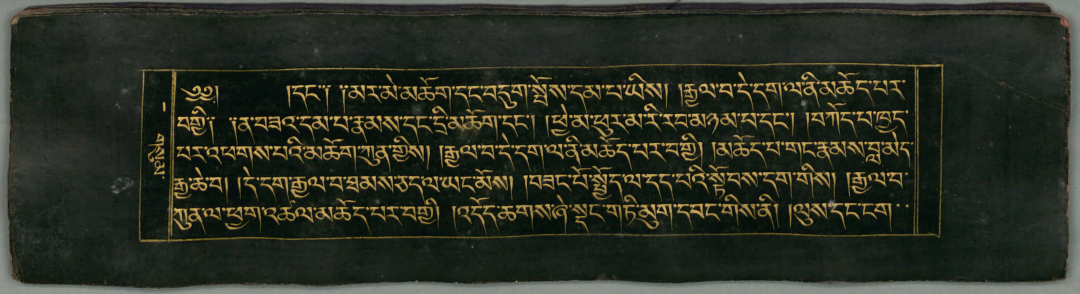 ༄༅། །དང་། །མར་མེ་མཆོག་དང་བདུག་སྤོས་དམ་པ་ཡིས། །རྒྱལ་བ་དེ་དག་ལ་ནི་མཆོད་པར་
བགྱི། །ན་བཟའ་དམ་པ་རྣམས་དང་དྲི་མཆོག་དང་། །ཕྱེ་མ་ཕུར་མ་རི་རབ་མཉམ་པ་དང་། །བཀོད་པ་ཁྱད་
པར་འཕགས་པའི་མཆོག་ཀུན་གྱིས། །རྒྱལ་བ་དེ་དག་ལ་ནི་མཆོད་པར་བགྱི། །མཆོད་པ་གང་རྣམས་བླ་མེད་
རྒྱ་ཆེ་བ། །དེ་དག་རྒྱལ་བ་ཐམས་ཅད་ལ་ཡང་མོས། །བཟང་པོ་སྤྱོད་ལ་དད་པའི་སྟོབས་དག་གིས། །རྒྱལ་བ་
ཀུན་ལ་ཕྱག་འཚལ་མཆོད་པར་བགྱི། །འདོད་ཆགས་ཞེ་སྡང་གཏི་མུག་དབང་གིས་ནི། །ལུས་དང་ངག་
གསུམ་